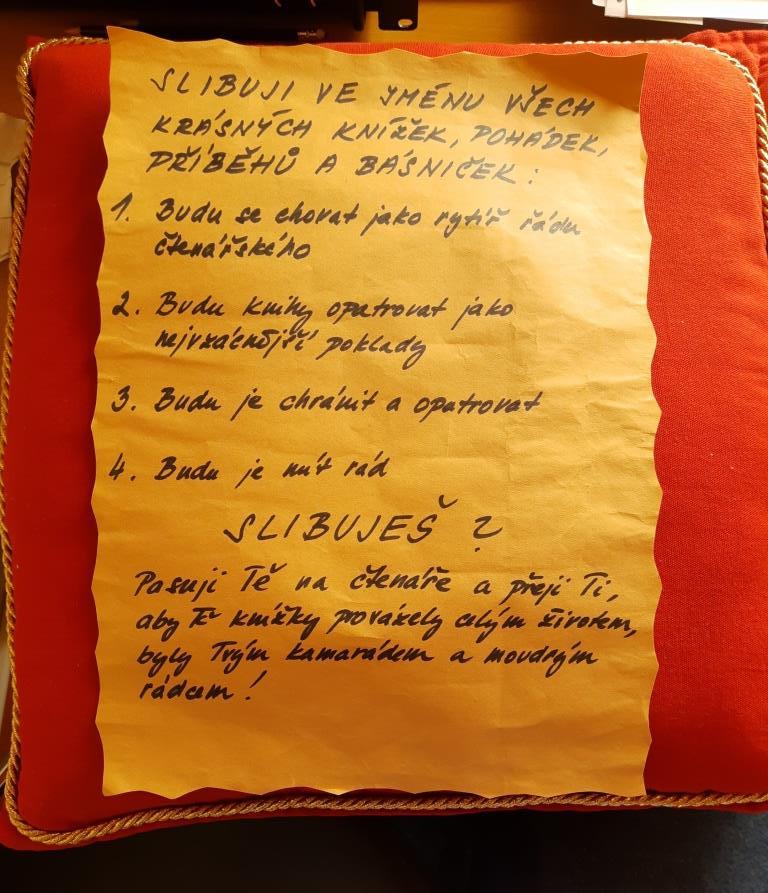 SLIBUJI VE JMÉNU VŠECH
KRÁSNÝCH KNÍŽEK, POHÁDEK,
PŘÍBĚHŮ A BÁSNIČEK:
1. Budu se chovat jako rytíř řádu
čtenářského
2. Budu knihy opatrovat jako
nejvzácnější poklady
3. Budu je chránit a opatrovat
4. Budu je mít rád
SLIBUJEŠ?
Pasuji Tě na čtenáře a přeji Ti,
aby Tě knížky provázely celým životem,
byly Tvým kamarádem a moudrým
rádcem!